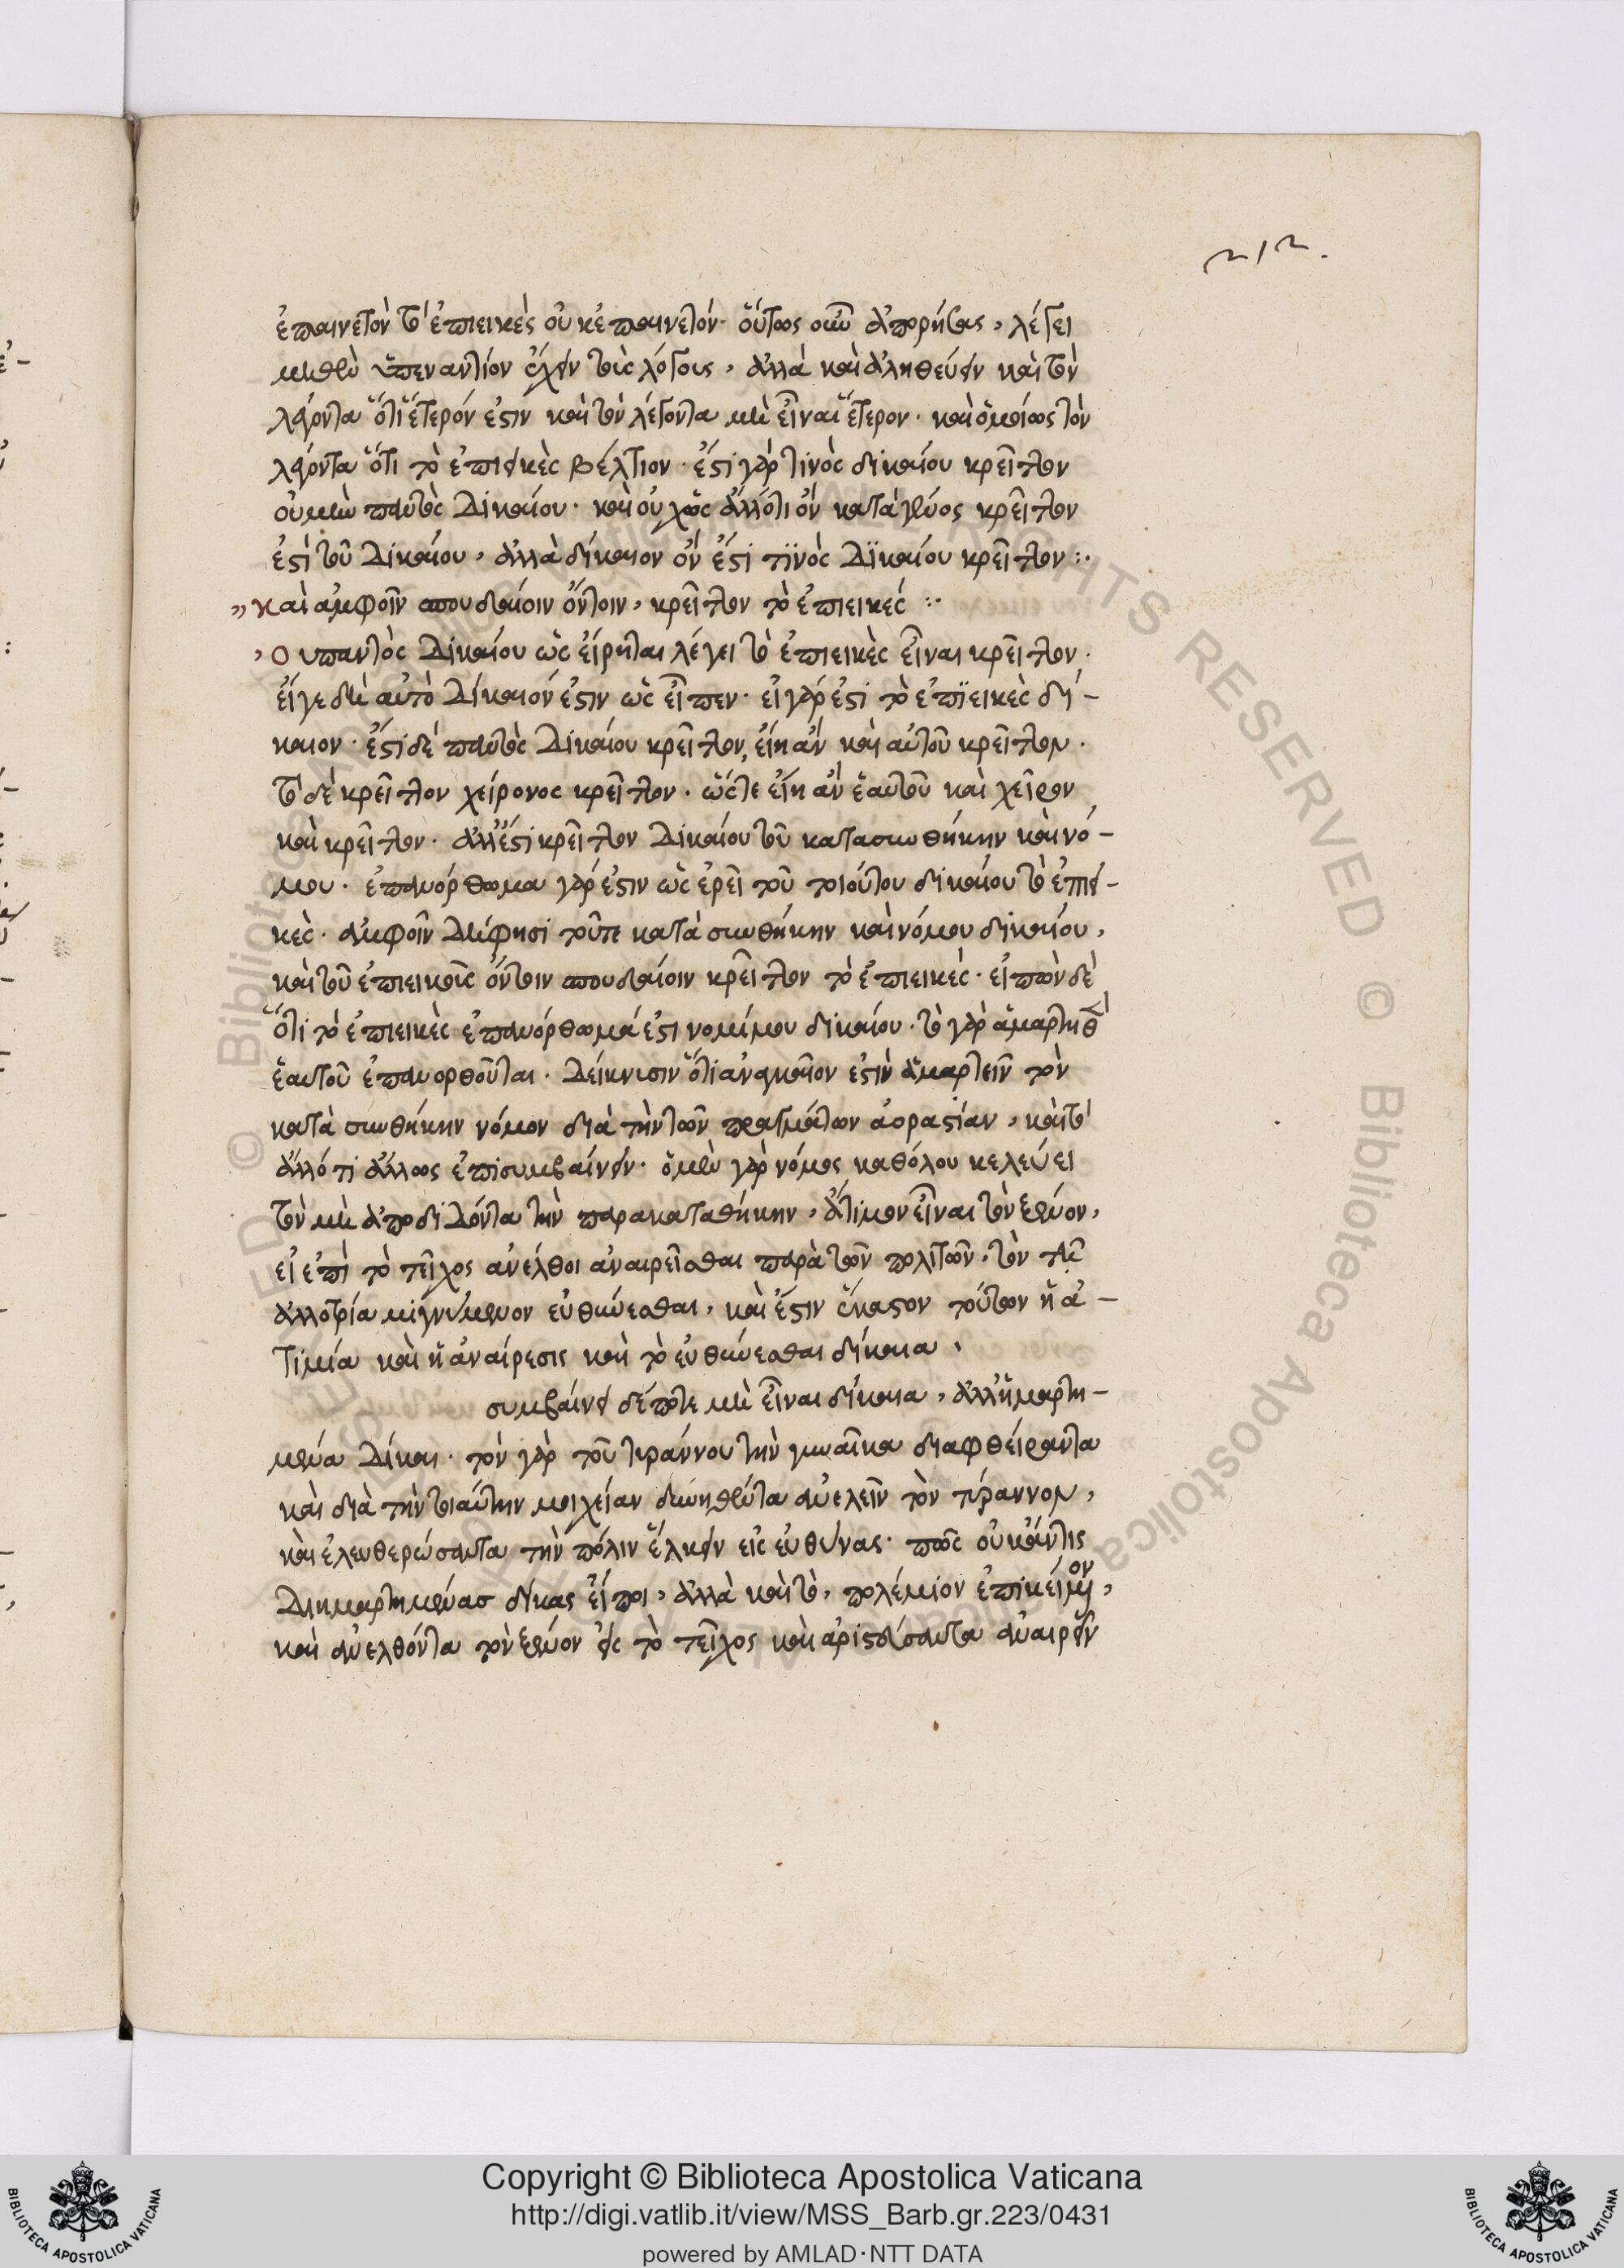 212.
ἐπαινετὸν τὸ ἐπιεικὲς οὐκ ἐπαινετόν· οὕτως οὖν ἀπορήσας, λέγει
μηθὲν ὑπεναντίον ἔχειν τοῖς λόγοις, ἀλλὰ καὶ ἀληθεύειν καὶ τὸν
λέγοντα ὅτι ἕτερόν ἐστιν καὶ τὸν λέγοντα μὴ εἶναι ἕτερον· καὶ ὁμοίως τὸν
λέγοντα ὅτι τὸ ἐπιεικὲς βέλτιον· ἔστι γάρ τινὸς δικαίου κρεῖττον
οὐ μὴν παντὸς δικαίου· καὶ οὐχ ὡς ἄλλό τι ὂν κατὰ γένος κρεῖττον
ἐστὶ τοῦ δικαίου, ἀλλὰ δίκαιον ὂν ἔστι τϊνὸς δϊκαίου κρεῖττον :·
„ καὶ ἀμφοῖν σπουδαίοιν ὄντοιν, κρεῖττον τὸ ἐπιεικές :·
, Ου παντὸς δικαίου ὡς εἴρηται λέγει τὸ ἐπιεικὲς εἶναι κρεῖττον·
εἴγε δὴ αὐτὸ δίκαιόν ἐστιν ὡς εἶπεν· εἰ γάρ ἐστι τὸ ἐπϊεικὲς δί-
καιον· ἔστι δὲ παντὸς δικαίου κρεῖττον, εἴη ἂν καὶ αὐτοῦ κρεῖττον·
τὸ δὲ κρεῖττον χείρονος κρεῖττον· ὥστε εἴη ἂν ἑαυτοῦ καὶ χεῖρον
καὶ κρεῖττον· ἀλλ' ἔστι κρεῖττον δικαίου τοῦ κατὰ συνθήκην καὶ νό-
μου· ἐπανόρθωμα γάρ ἐστιν ὡς ἐρεῖ τοῦ τοιούτου δικαίου τὸ ἐπιει-
κὲς· ἀμφοῖν δὲ φησι τοῦτε κατὰ συνθήκην καὶ νόμου δικαίου,
καὶ τοῦ ἐπιεικοῖς ὄντοιν σπουδαίοιν κρεῖττον τὸ ἐπιεικές· εἰπὼν δὲ
ὅτι τὸ ἐπιεικὲς ἐπανόρθωμά ἐστι νομίμου δικαίου· τὸ γὰρ ἁμαρτηθὲν
ἑαυτοῦ ἐπανορθοῦται· δείκνισιν ὅτι ἀναγκαῖον ἐστὶν ἁμαρτεῖν τὸν
κατὰ συνθήκην νόμον διὰ τὴν τῶν πραγμάτων ἀοραστίαν, καὶ τὸ
ἄλλό τι ἄλλως ἐπισυμβαίνειν· ὁ μὲν γὰρ νόμος καθόλου κελεύει
τὸν μὴ ἀποδιδόντα τὴν παρακαταθήκην, ἄτιμον εἶναι τὸν ξένον,
εἰ ἐπὶ τὸ τεῖχος ἀνέλθοι ἀναιρεῖσθαι παρὰ τῶν πολιτῶν· τὸν τῇ
ἀλλοτρία μιγνύμενον εὐθύνεσθαι, καὶ ἔστιν ἕκαστον τούτων ἡ ἀ-
τιμία καὶ ἡ ἀναίρεσις καὶ τὸ εὐθύνεσθαι δίκαια.
συμβαίνει δέ ποτε μὴ εἶναι δίκαια, ἀλλ' ἡμαρτη-
μένα δίκαι· τὸν γὰρ τοῦ τυράννου τὴν γυναῖκα διαφθείραντα
καὶ διὰ τὴν τοιαύτην μοιχείαν δυνηθέντα ἀνελεῖν τὸν τύραννον,
καὶ ἐλευθερώσαντα τὴν πόλιν ἕλκειν εἰς εὐθύνας· πῶς οὐκ ἄν τις
διημαρτημένας δίκας εἴποι, ἀλλὰ καὶ τὸ, πολέμιον ἐπικείμενον,
καὶ ἀνελθόντα τὸν ξένον εἰς τὸ τεῖχος καὶ ἀριστεύσαντα ἀναιρεῖν
Copyright © Biblioteca Apostolica Vaticana
http://digi.vatlib.it/view/MSS_Barb.gr.223/0431
powered by AMLAD·NTT DATA